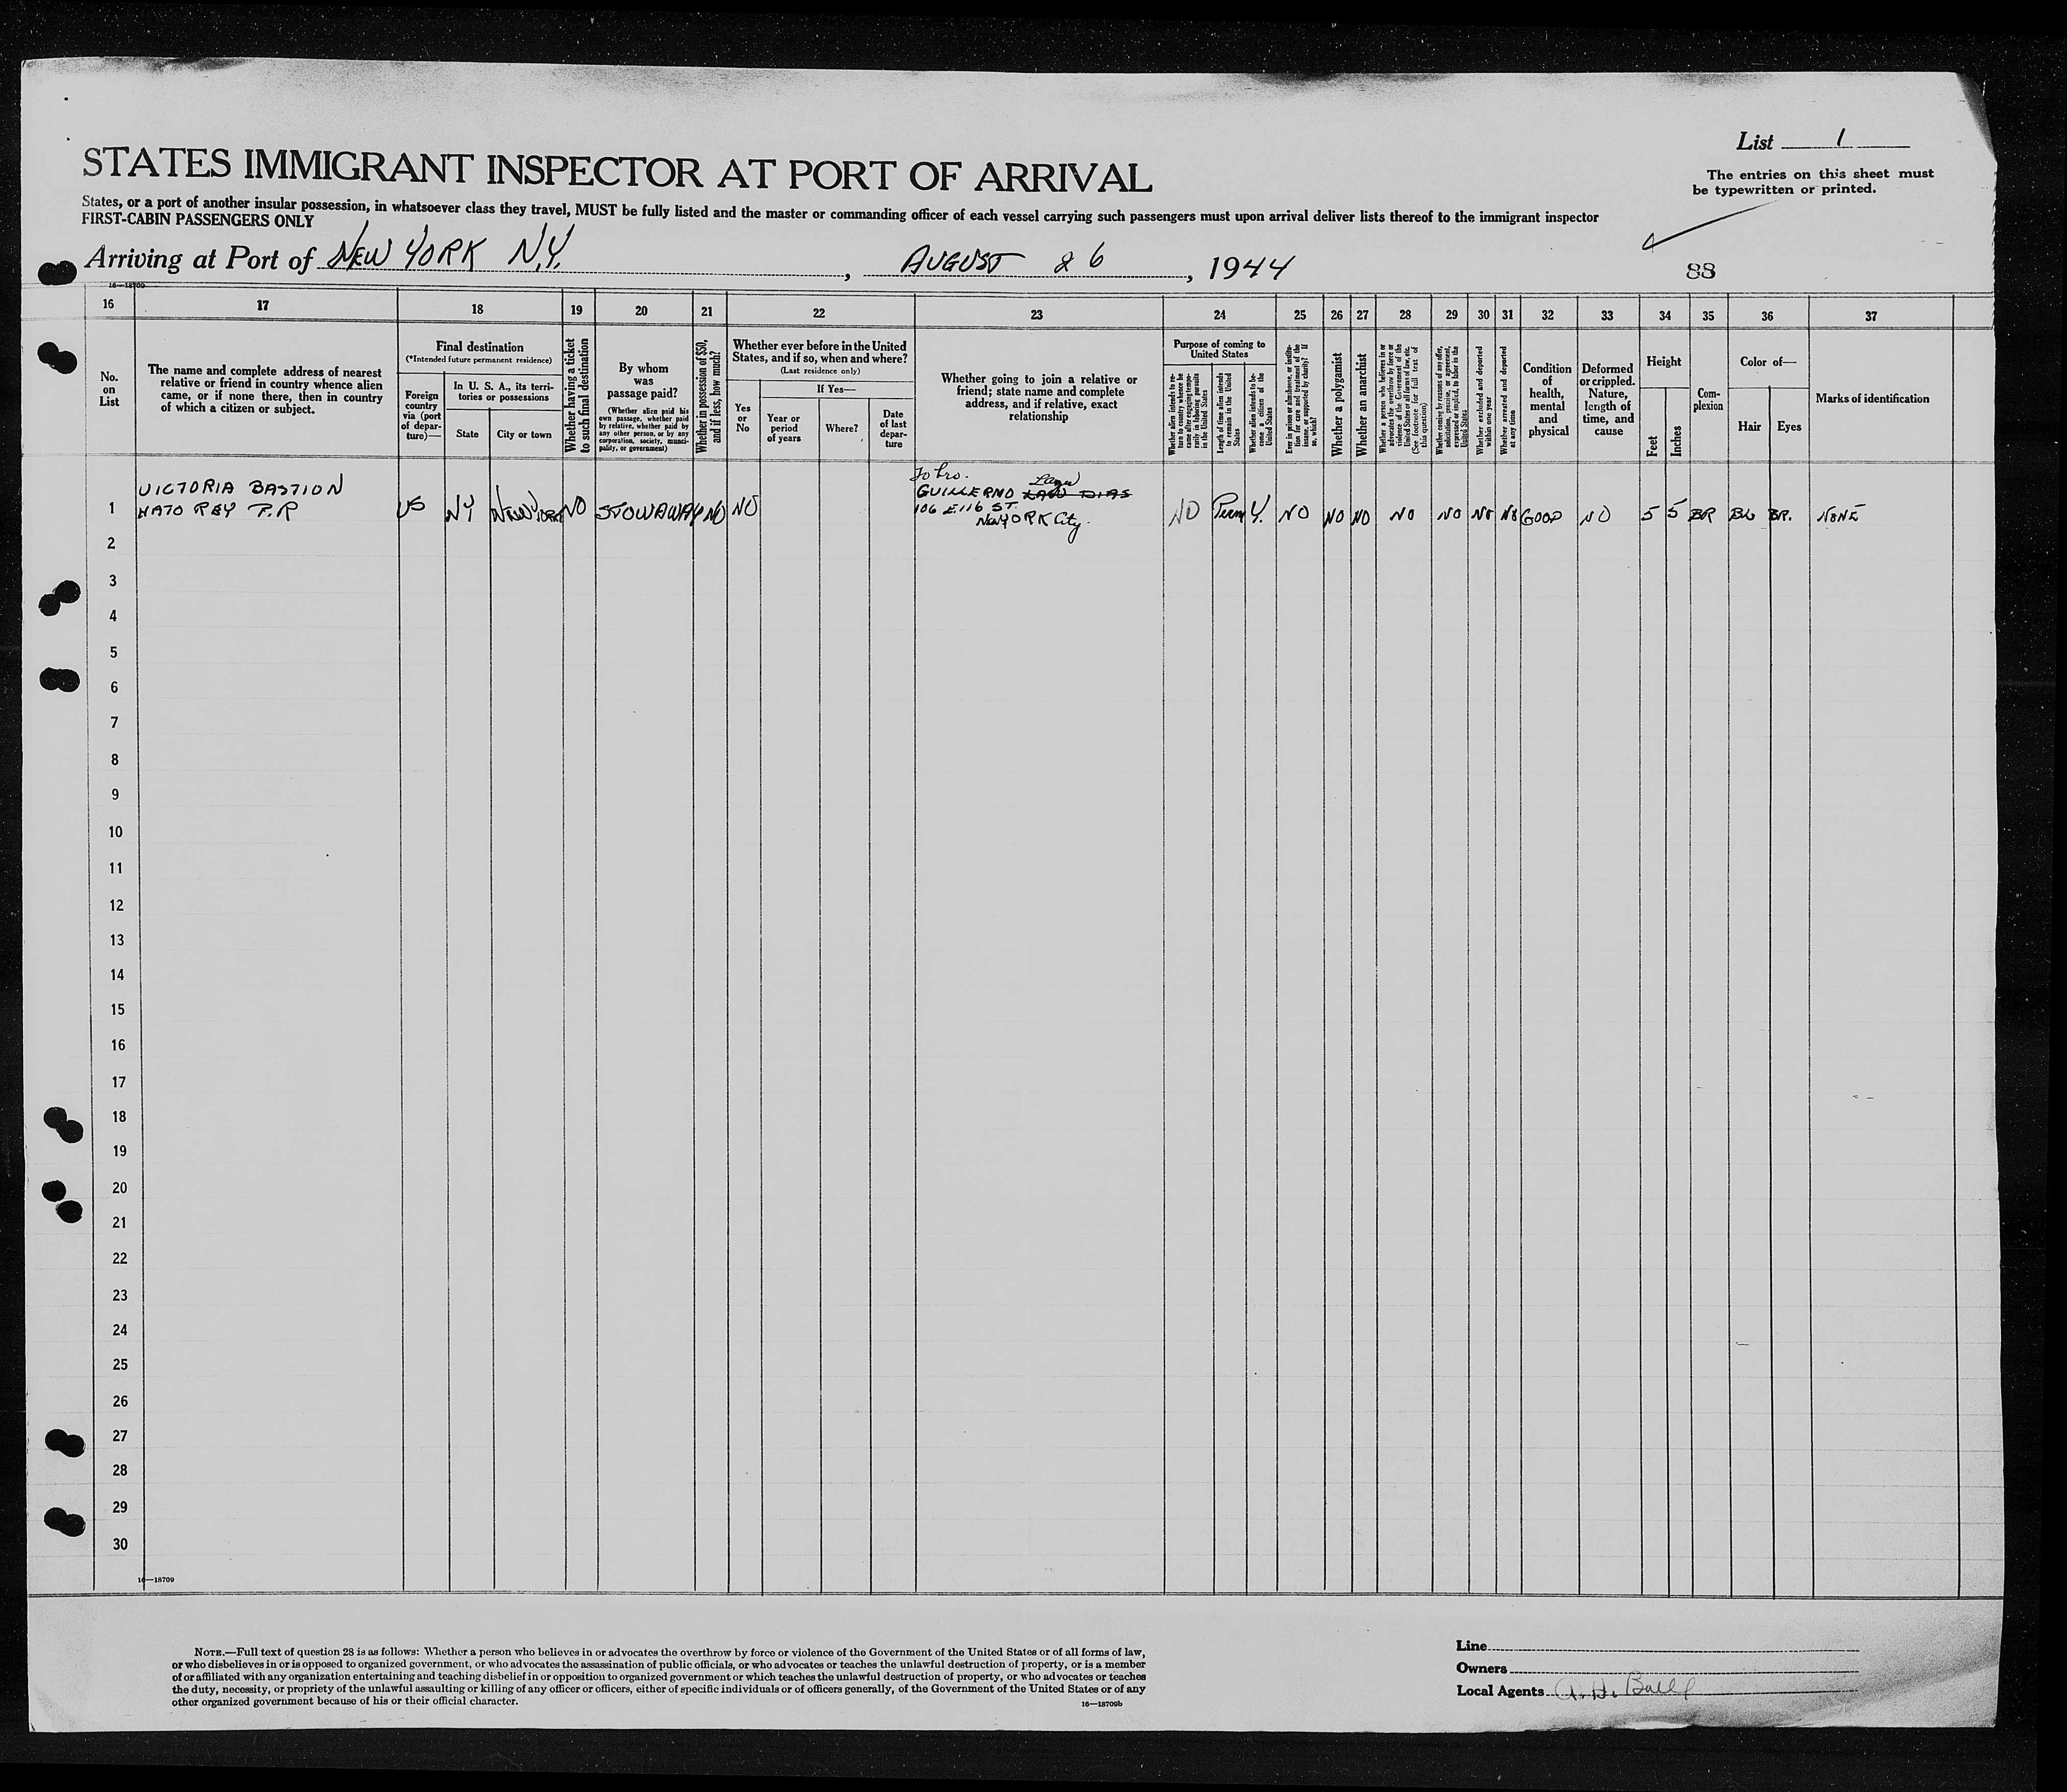 List 1
The entries on this sheet must
be typewritten or printed.
STATES IMMIGRANT INSPECTOR AT PORT OF ARRIVAL
States, or a port of another insular possession, in whatsoever class they travel, MUST be fully listed and the master or commanding officer of each vessel carrying such passengers must upon arrival deliver lists thereof to the immigrant inspector
FIRST-CABIN PASSENGERS ONLY
Arriving at Port of NEW YORK N.Y., AUGUST 26, 1944
88
16—18709
16 17 18 19 20 21 22 23 24 25 26 27 28 29 30 31 32 33 34 35 36 37
No.
on
List
The name and complete address of nearest
relative or friend in country whence alien
came, or if none there, then in country
of which a citizen or subject.
Final destination
(*Intended future permanent residence)
Foreign
country
via (port
of depar-
ture)—
In U. S. A., its terri-
tories or possessions
State
City or town
Whether having a ticket
to such final destination
By whom
was
passage paid?
(Whether alien paid his
own passage, whether paid
by relative, whether paid by
any other person, or by any
corporation, society, munici-
pality, or government)
Whether in possession of $50,
and if less, how much?
Whether ever before in the United
States, and if so, when and where?
(Last residence only)
Yes
or
No
If Yes—
Year or
period
of years
Where?
Date
of last
depar-
ture
Whether going to join a relative or
friend; state name and complete
address, and if relative, exact
relationship
Purpose of coming to
United States
Whether alien intends to re-
turn to country whence he
came after engaging tempo-
rarily in laboring pursuits
in the United States
Length of time alien intends
to remain in the United
States
Whether alien intends to be-
come a citizen of the
United States
Ever in prison or almshouse, or institu-
tion for care and treatment of the
insane, or supported by charity? If
so, which?
Whether a polygamist
Whether an anarchist
Whether a person who believes in or
advocates the overthrow by force or
violence of the Government of the
United States or all forms of law, etc.
(See footnote for full text of
this question)
Whether coming by reasons of any offer,
solicitation, promise, or agreement,
expressed or implied, to labor in the
United States
Whether excluded and deported
within one year
Whether arrested and deported
at any time
Condition
of
health,
mental
and
physical
Deformed
or crippled.
Nature,
length of
time, and
cause
Height
Feet
Inches
Com-
plexion
Color of—
Hair
Eyes
Marks of identification
1
VICTORIA BASTION
HATO REY P.R
US NY NEW YORK NO STOWAWAY NO NO
To bro.
GUILLERMO
106 E. 116 ST.
NEW YORK City.
NO Perm Y. NO NO NO NO NO NO NO GOOD NO 5 5 BR BL BR. NONE
2
3
4
5
6
7
8
9
10
11
12
13
14
15
16
17
18
19
20
21
22
23
24
25
26
27
28
29
30
16—18709
NOTE.—Full text of question 28 is as follows: Whether a person who believes in or advocates the overthrow by force or violence of the Government of the United States or of all forms of law,
or who disbelieves in or is opposed to organized government, or who advocates the assassination of public officials, or who advocates or teaches the unlawful destruction of property, or is a member
of or affiliated with any organization entertaining and teaching disbelief in or opposition to organized government or which teaches the unlawful destruction of property, or who advocates or teaches
the duty, necessity, or propriety of the unlawful assaulting or killing of any officer or officers, either of specific individuals or of officers generally, of the Government of the United States or of any
other organized government because of his or their official character.
16—18709b
Line
Owners
Local Agents